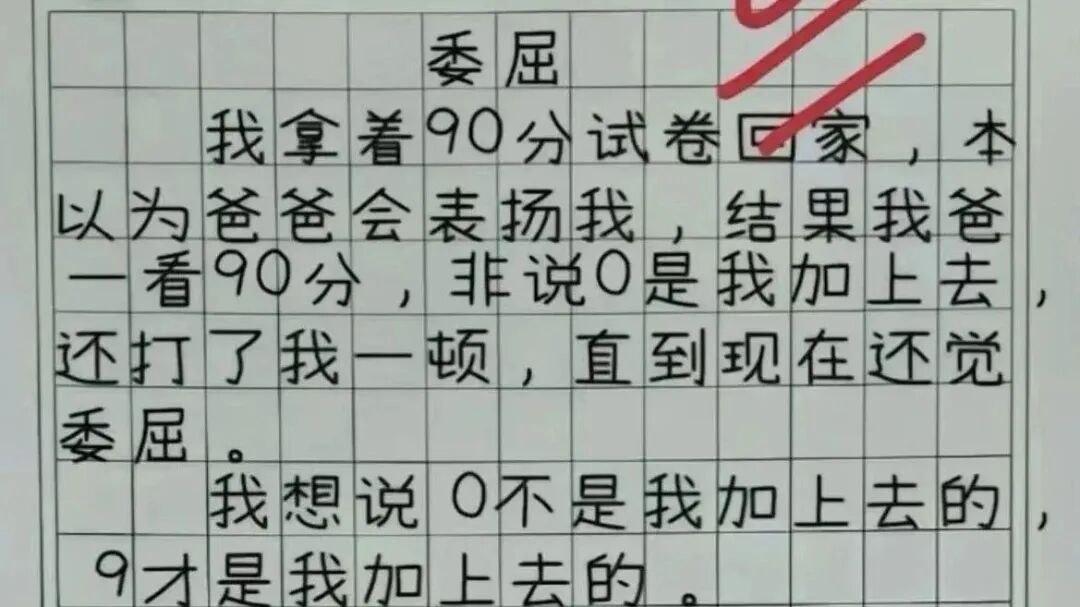 委屈
我拿着90分试卷回家，本
以为爸爸会表扬我，结果我爸
一看90分，非说0是我加上去，
还打了我一顿，直到现在还觉
委屈。
我想说0不是我加上去的，
9才是我加上去的。